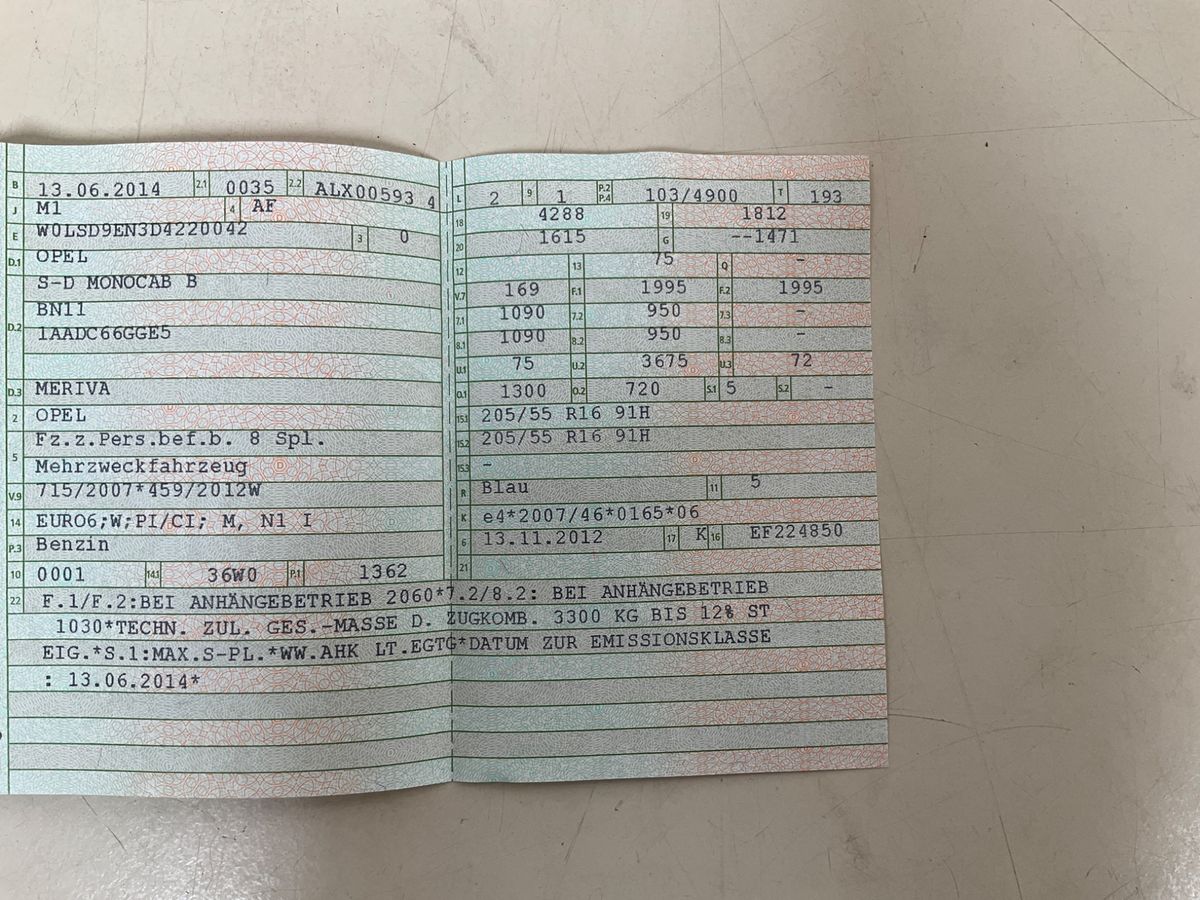 B 13.06.2014 2.1 0035 2.2 ALX00593 4
J M1 4 AF
E W0LSD9EN3D4220042 3 0
D.1 OPEL
S-D MONOCAB B
D.2 BN11
1AADC66GGE5
D.3 MERIVA
2 OPEL
5 Fz.z.Pers.bef.b. 8 Spl.
Mehrzweckfahrzeug
V.9 715/2007*459/2012W
14 EURO6;W;PI/CI; M, N1 I
P.3 Benzin
10 0001 14.1 36W0 P.1 1362
L 2 9 1 P.2 P.4 103/4900 T 193
18 4288 19 1812
20 1615 G --1471
12 13 75 Q -
V.7 169 F.1 1995 F.2 1995
7.1 1090 7.2 950 7.3 -
8.1 1090 8.2 950 8.3 -
U.1 75 U.2 3675 U.3 72
O.1 1300 O.2 720 S.1 5 S.2 -
15.1 205/55 R16 91H
15.2 205/55 R16 91H
15.3 -
R Blau 11 5
K e4*2007/46*0165*06
6 13.11.2012 17 K 16 EF224850
21
22 F.1/F.2:BEI ANHÄNGEBETRIEB 2060*7.2/8.2: BEI ANHÄNGEBETRIEB
1030*TECHN. ZUL. GES.-MASSE D. ZUGKOMB. 3300 KG BIS 12% ST
EIG.*S.1:MAX.S-PL.*WW.AHK LT.EGTG*DATUM ZUR EMISSIONSKLASSE
: 13.06.2014*